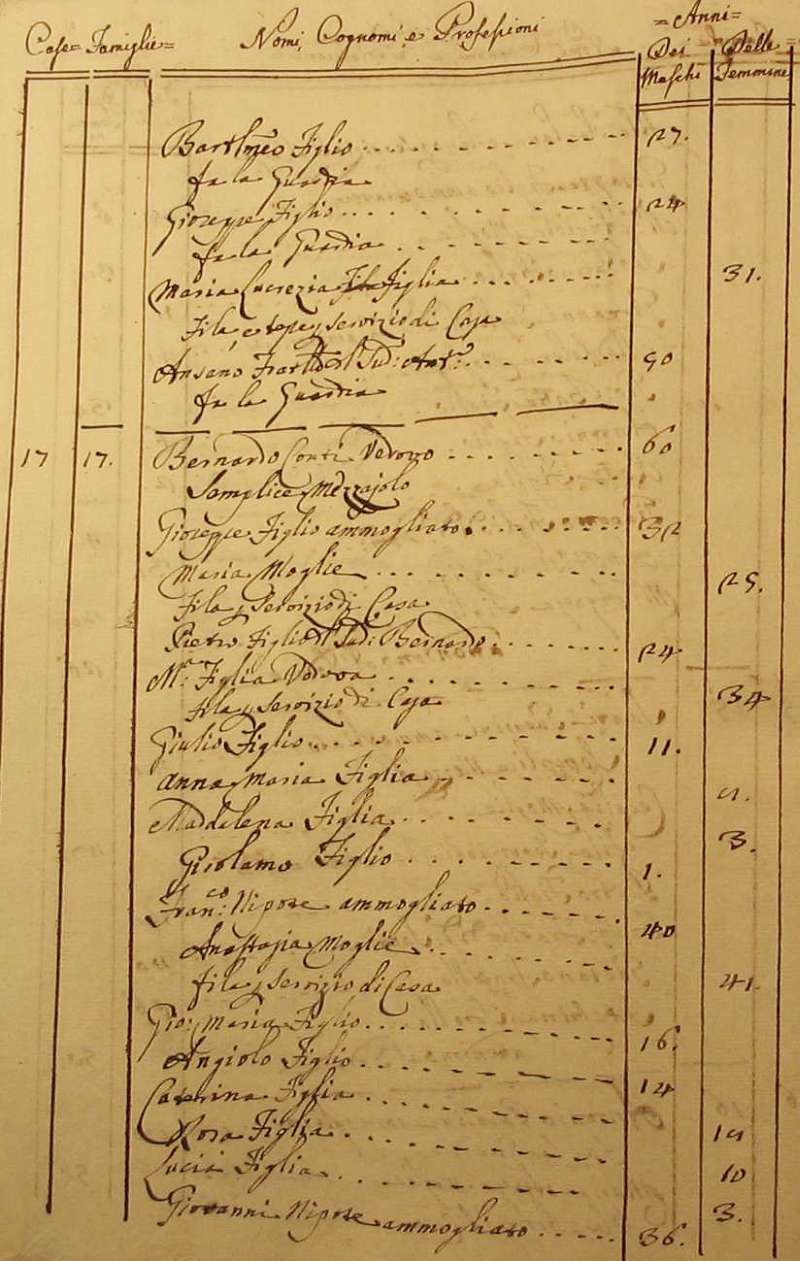 = Anni =
Case = Famiglie = Nomi, Cognomi, e Professioni Dei Maschi Delle Femmine
Bartlmeo Figlio 27.
fa la Guardia
Gioseppe Figlio 24
fa la Guardia
Maria Lucrezia Figlia 31.
Fila, e servizio di Casa
Ansano 90
fa la Guardia
17 17. Bernardo Conti Vedovo 60
Semplice Mezzajolo
Gioseppe Figlio ammogliato 32
Maria Moglie 25.
Fila, servizio di Casa
Pietro Figlio Bernardo 24
M.ª Figlia Vedova 34
fila servizio di Casa
Giulio Figlio 11.
Anna Maria Figlia
Maddalena Figlia 3.
Girolamo Figlio 1.
Fran.co Nipote ammogliato 40
Anastasia Moglie
fila servizio di Casa 41.
Gio: Maria Figlio 16.
Angiolo Figlio 14
Caterina Figlia
Rosa Figlia
Lucia Figlia 10
Giovanni Nipote ammogliato 3.
36.